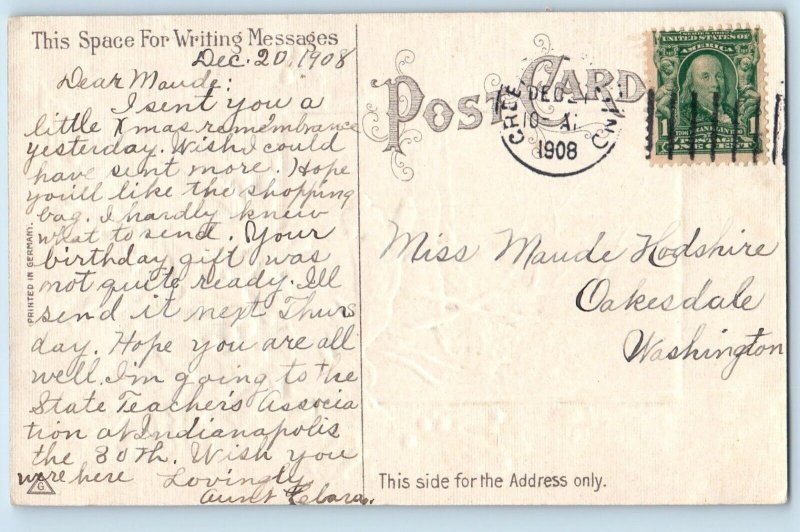 This Space For Writing Messages
Dec. 20, 1908
Dear Maude:
I sent you a
little Xmas remembrance
yesterday. Wish I could
have sent more. I Hope
you'll like the shopping
bag. I hardly knew
what to send. Your
birthday gift was
not quite ready. I'll
send it next Thurs
day. Hope you are all
well. I'm going to the
State Teacher's Associa
tion at Indianapolis
the 30th. Wish you
were here Lovingly
Aunt Clara.
PRINTED IN GERMANY.
G
POST CARD
DEC 21
10 A
1908
IND
SERIES 1902
UNITED STATES OF
AMERICA
1
FRANKLIN
POSTAGE
ONE CENT
Miss Maude Hodshire
Oakesdale
Washington
This side for the Address only.